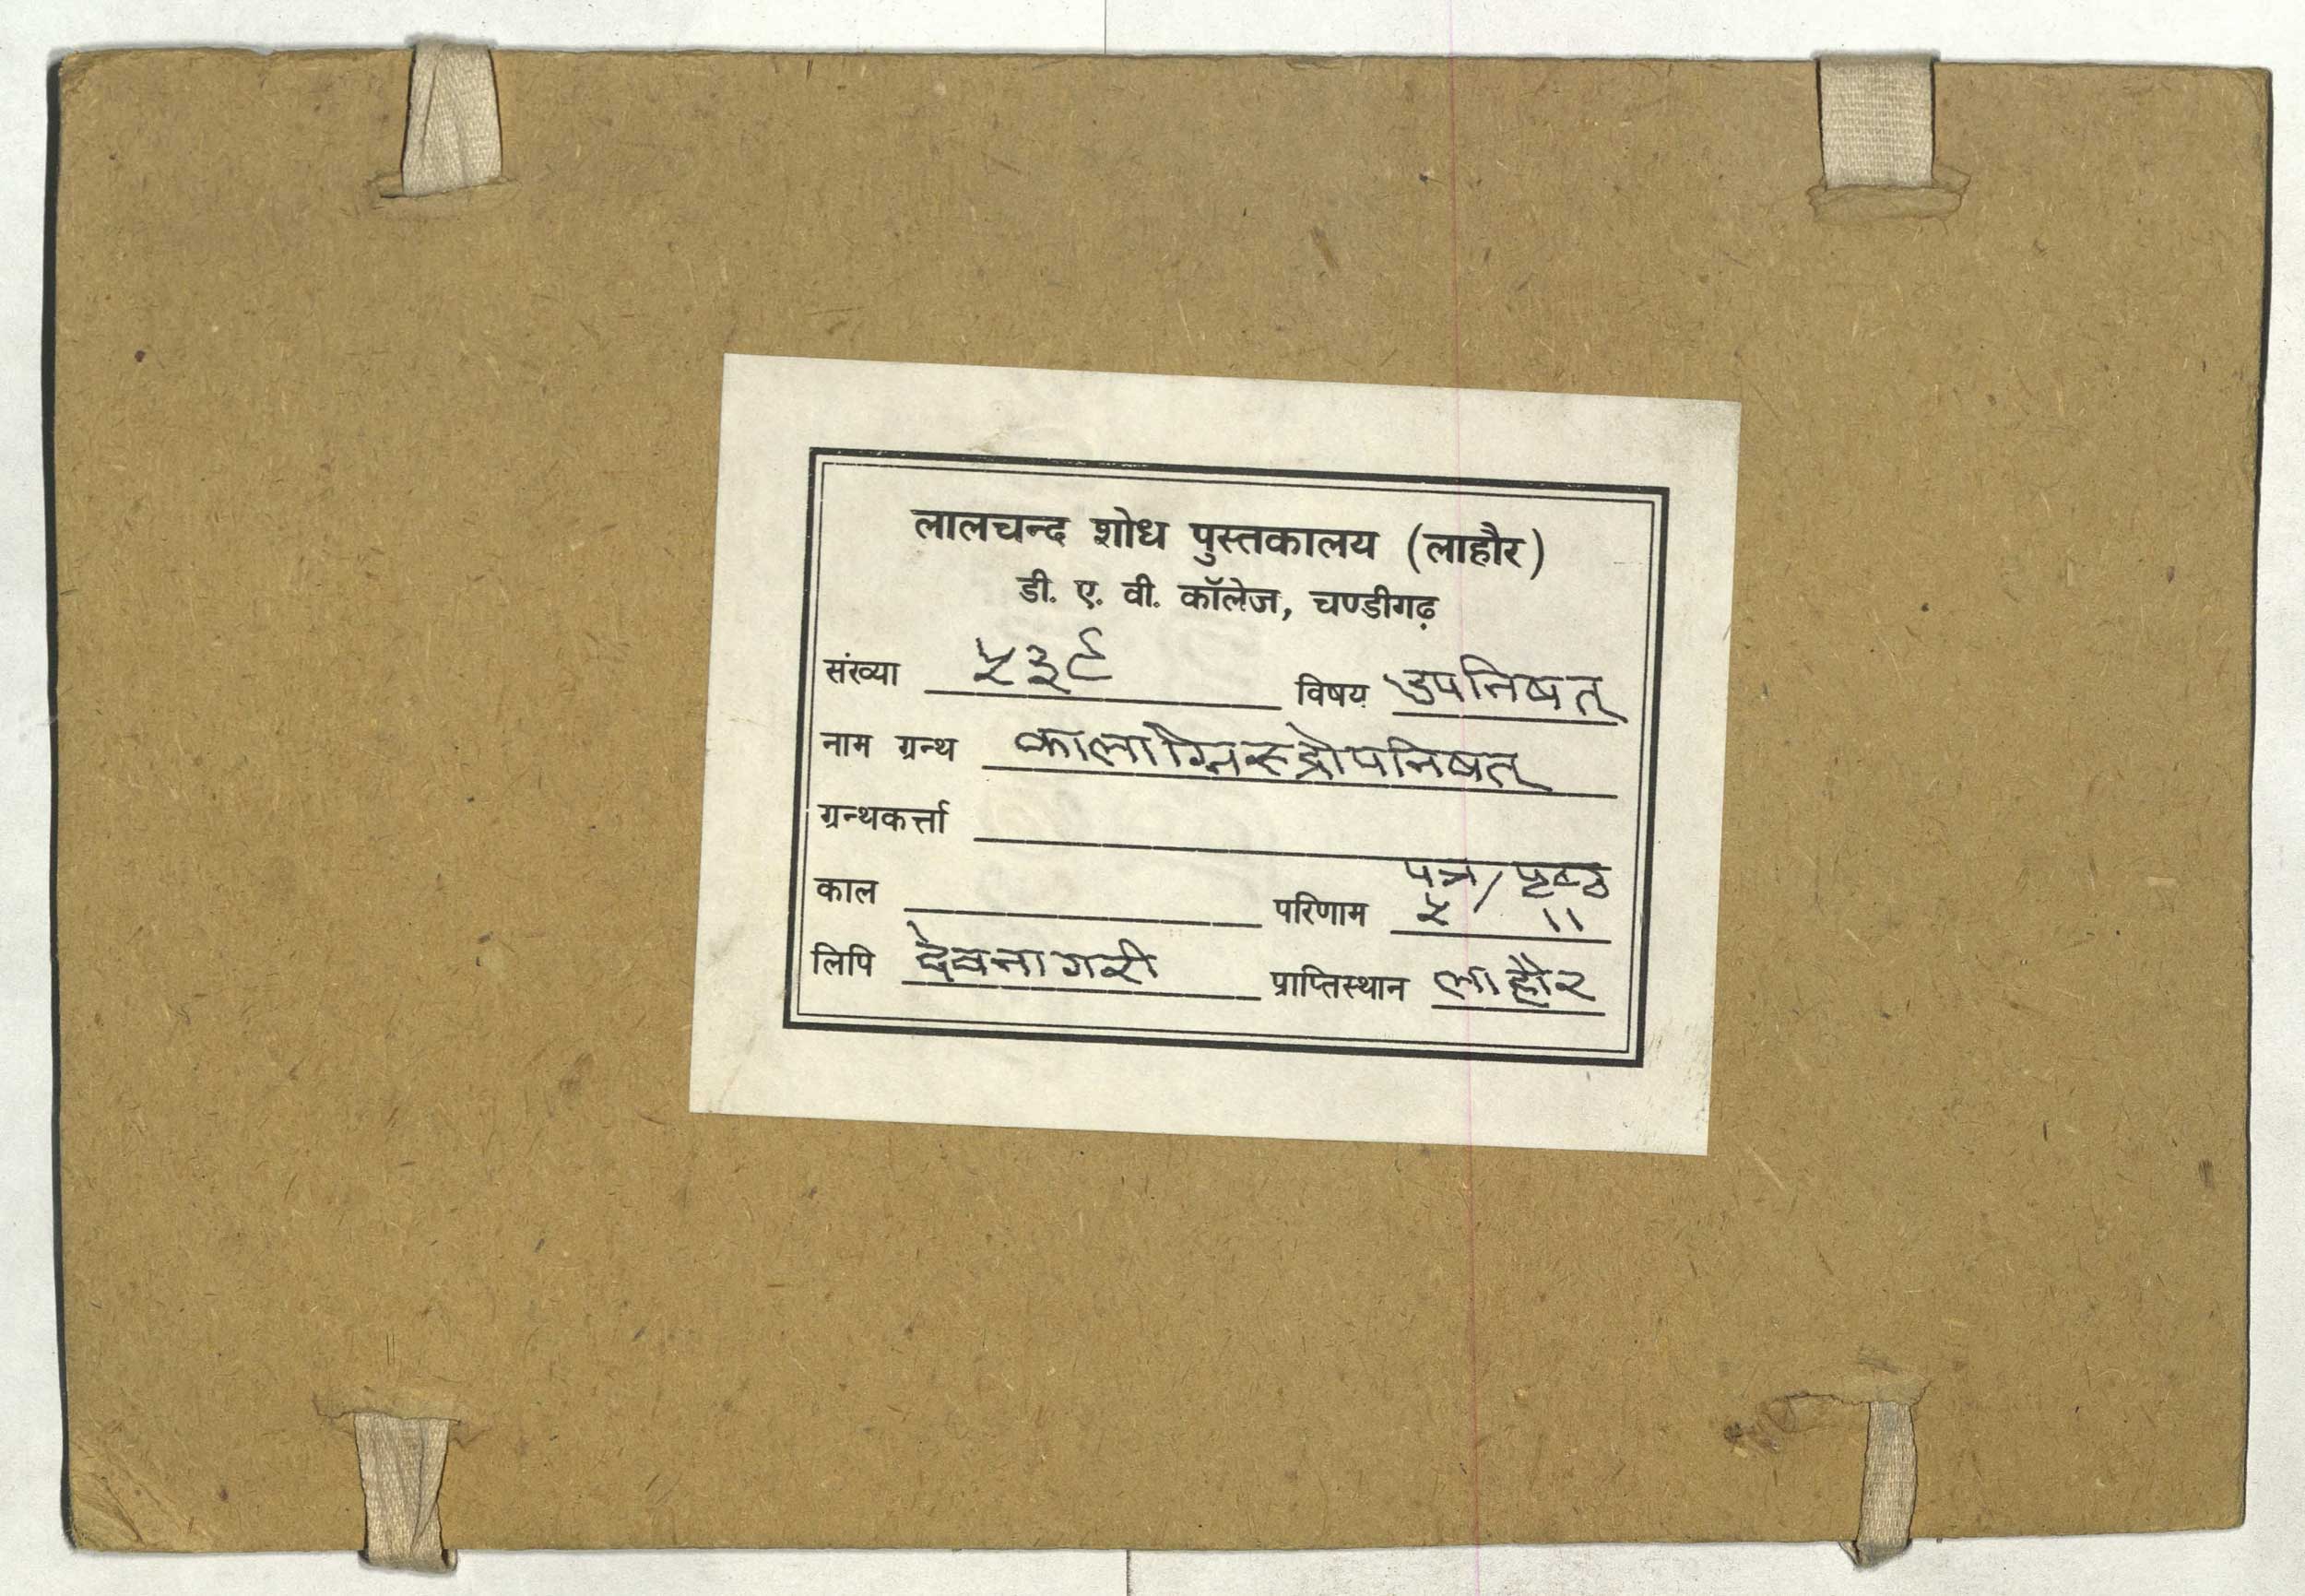 लालचन्द शोध पुस्तकालय (लाहौर)
डी. ए. वी. कॉलेज, चण्डीगढ़
संख्या ५३९ विषय उपनिषत्
नाम ग्रन्थ कालाग्निरुद्रोपनिषत्
ग्रन्थकर्त्ता
काल परिणाम पत्र/पृष्ठ
५ ११
लिपि देवनागरी प्राप्तिस्थान लाहौर